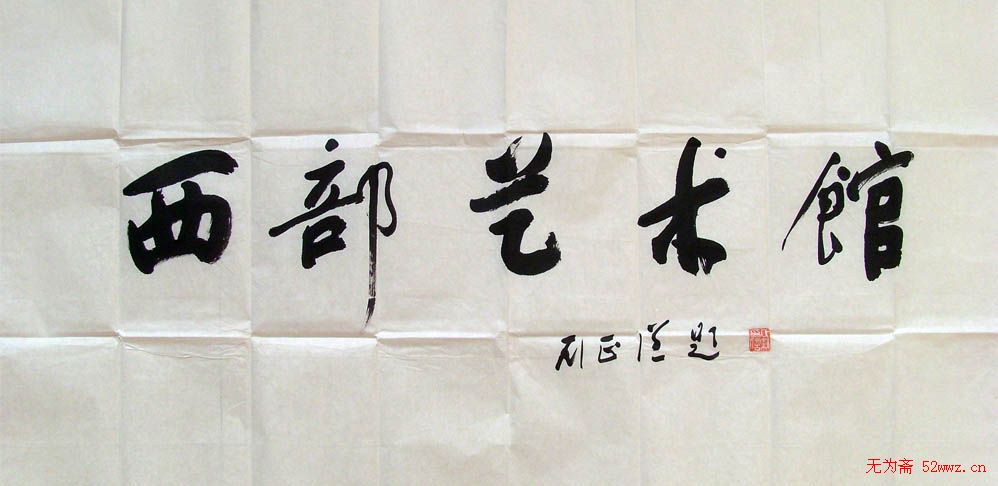 西部艺术館
刘正谦题
无为斋 52wwz.cn